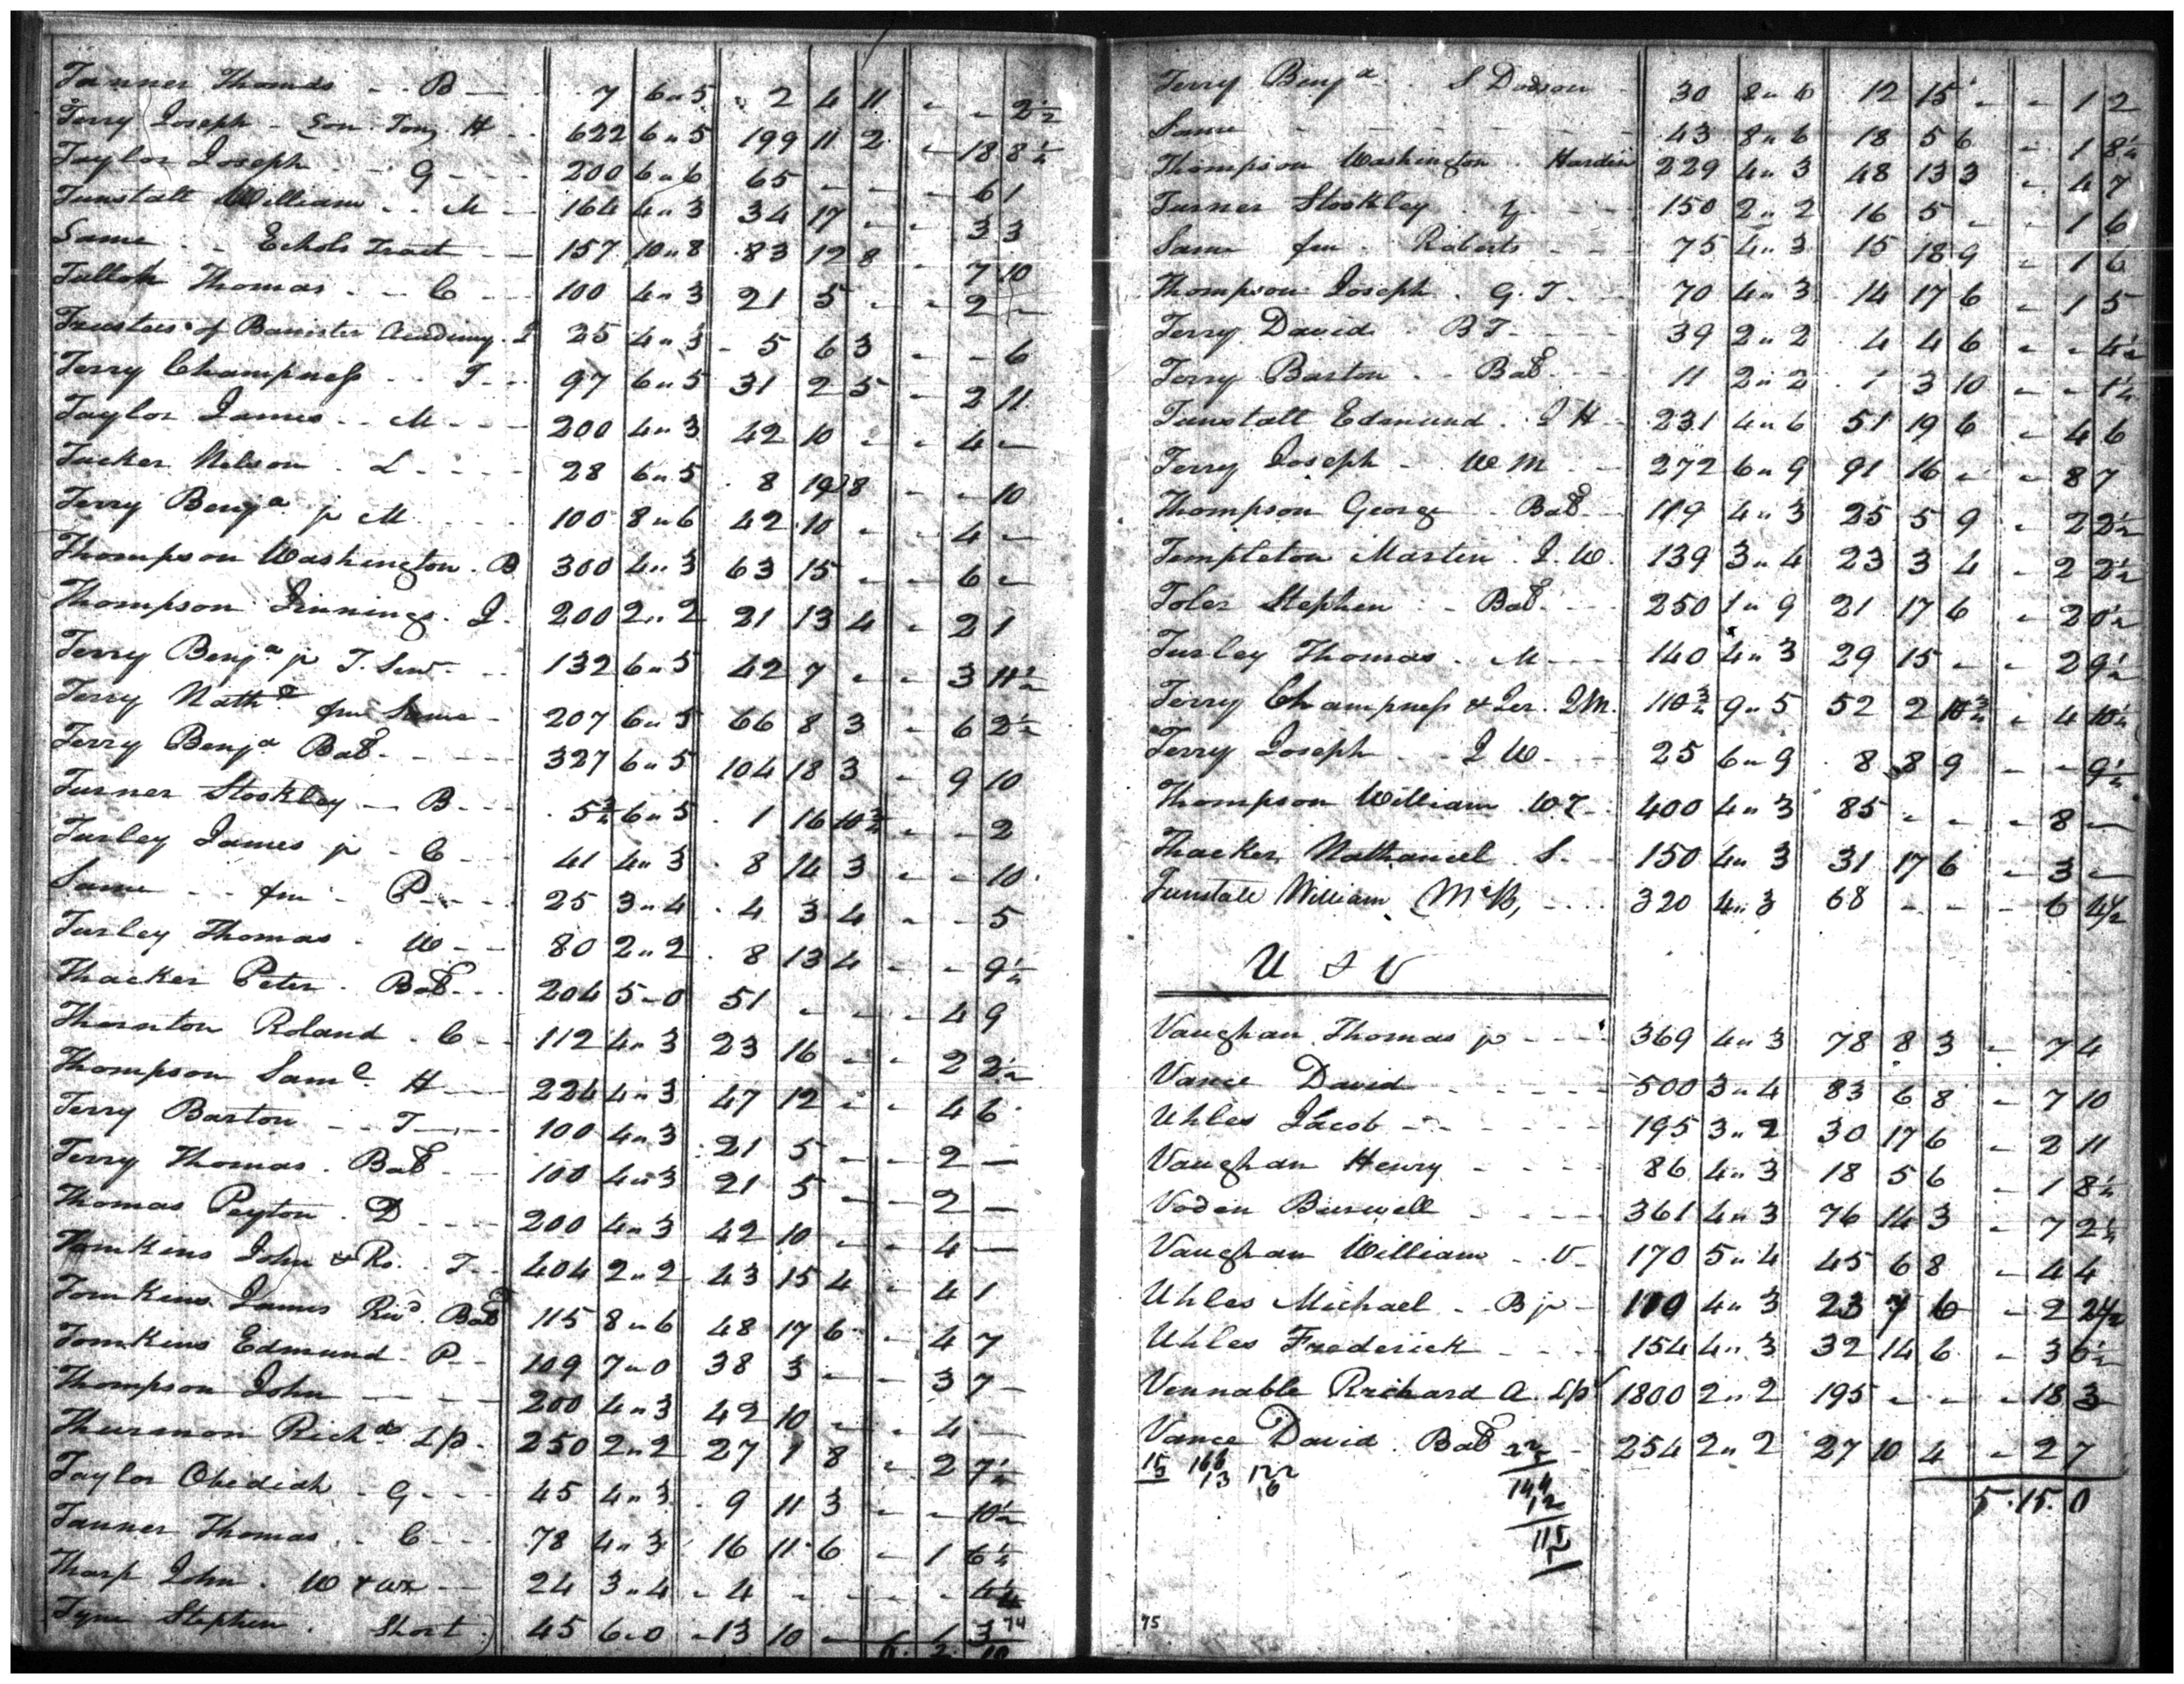 Tanner Thomas - - B - 7 6 " 5 2 4 11 - - 2½
Terry Joseph - Son. Tom. H - 622 6 " 5 199 11 2 - 18 8½
Taylor Joseph - - G - - 200 6 " 6 65 - - - 6 1
Tunstall William - - M - 164 4 " 3 34 17 - - 3 3
Same - - Echols Tract - 157 10 " 8 83 12 8 - 7 10
Thomas - - C - 100 4 " 3 21 5 - - 2 -
Trustees of Banister Academy. 25 4 " 3 - 5 6 3 - - 6
Terry Champness - - T - - 97 6 " 5 31 2 5 - 2 11
Taylor James - - M - - 200 4 " 3 42 10 - - 4 -
Tucker Nelson - L - - - 28 6 " 5 8 19 8 - - 10
Terry Benja jr M - - - 100 8 " 6 42 10 - - 4 -
Thompson Washington - B 300 4 " 3 63 15 - - 6 -
Thompson Jinnings. J. 200 2 " 2 21 13 4 - 2 1
Terry Benja jr T. - - 132 6 " 5 42 7 - - 3 11½
Terry Nathl fm Same - 207 6 " 5 66 8 3 - 6 2½
Terry Benja Bab - - - 327 6 " 5 104 18 3 - 9 10
Turner Stockley - B - - 5¾ 6 " 5 1 16 10¾ - - 2
Turley James jr - C - - 41 4 " 3 8 14 3 - - 10
Same - - fm - P - - - 25 3 " 4 4 3 4 - - 5
Turley Thomas - W - - 80 2 " 2 8 13 4 - - 9½
Thacker Peter - Bab - - 204 5 - 0 51 - - - 4 9
Thornton Roland - C - 112 4 " 3 23 16 - - 2 2½
Thompson Saml H - 224 4 " 3 47 12 - - 4 6
Terry Barton - - T - - 100 4 " 3 21 5 - - 2 -
Terry Thomas. Bab - 100 4 " 3 21 5 - - 2 -
Thomas Peyton - D - - - 200 4 " 3 42 10 - - 4 -
Tomkins John & Ro. T - 404 2 " 2 43 15 4 - 4 1
Tomkins James Rivd. Bab 115 8 " 6 48 17 6 - 4 7
Tomkins Edmund - P - 109 7 " 0 38 3 - - 3 7
Thompson John - - - 200 4 " 3 42 10 - - 4 -
Thurmon Richd Lp. 250 2 " 2 27 1 8 - 2 7½
Taylor Obediah - G - - 45 4 " 3 9 11 3 - - 10½
Tanner Thomas - C - - 78 4 " 3 16 11 6 - 1 6½
Tharp John. W & wx - 24 3 " 4 - 4 - - - 4½
Tyne Stephen. Short 45 6 " 0 - 13 10 - - 1 3
74
6. 2. 10
Terry Benja. S Dodson 30 8 " 6 12 15 - - 1 2
Same - - - 43 8 " 6 18 5 6 - 1 8½
Thompson Washington. Hardin 229 4 " 3 48 13 3 - 4 7
Turner Stockley. Y - - - 150 2 " 2 16 5 - - 1 6
Same fm - Roberts - - 75 4 " 3 15 18 9 - 1 6
Thompson Joseph. G. T. - - 70 4 " 3 14 17 6 - 1 5
Terry David. B T - - - 39 2 " 2 4 4 6 - - 4½
Terry Barton - - Bab - - 11 2 " 2 1 3 10 - - 1½
Tunstall Edmund. J H - 231 4 " 6 51 19 6 - 4 6
Terry Joseph - W M - - 272 6 " 9 91 16 - - 8 7
Thompson George - Bab - 119 4 " 3 25 5 9 - 2 2½
Templeton Martin. J. W. 139 3 " 4 23 3 4 - 2 2½
Toler Stephen - - Bab - - 250 1 " 9 21 17 6 - 2 0½
Turley Thomas. M - - - 140 4 " 3 29 15 - - 2 9½
Terry Champness & Jer. J M. 110¾ 9 " 5 52 2 10¾ - 4 10½
Terry Joseph - J W. - - 25 6 " 9 8 8 9 - - 9½
Thompson William W T - 400 4 " 3 85 - - - 8 -
Thacker Nathaniel. S. - 150 4 " 3 31 17 6 - 3 -
Tunstale William McB, - - - 320 4 " 3 68 - - - 6 4½
U & V
Vaughan Thomas jr - - - 369 4 " 3 78 8 3 - 7 4
Vance David - - - - 500 3 " 4 83 6 8 - 7 10
Uhles Jacob - - - - - 195 3 " 2 30 17 6 - 2 11
Vaughan Henry - - - - 86 4 " 3 18 5 6 - 1 8½
Voden Burwell - - - - 361 4 " 3 76 14 3 - 7 2½
Vaughan William - V - 170 5 " 4 45 6 8 - 4 4
Uhles Michael - B jr - 110 4 " 3 23 7 6 - 2 2½
Uhles Frederick - - - 154 4 " 3 32 14 6 - 3 0½
Vennable Richard A. Lp 1800 2 " 2 195 - - - 18 3
Vance David. Bab - 254 2 " 2 27 10 4 - 2 7
15 166 122
13 6
144
12
115
5. 15. 0
75